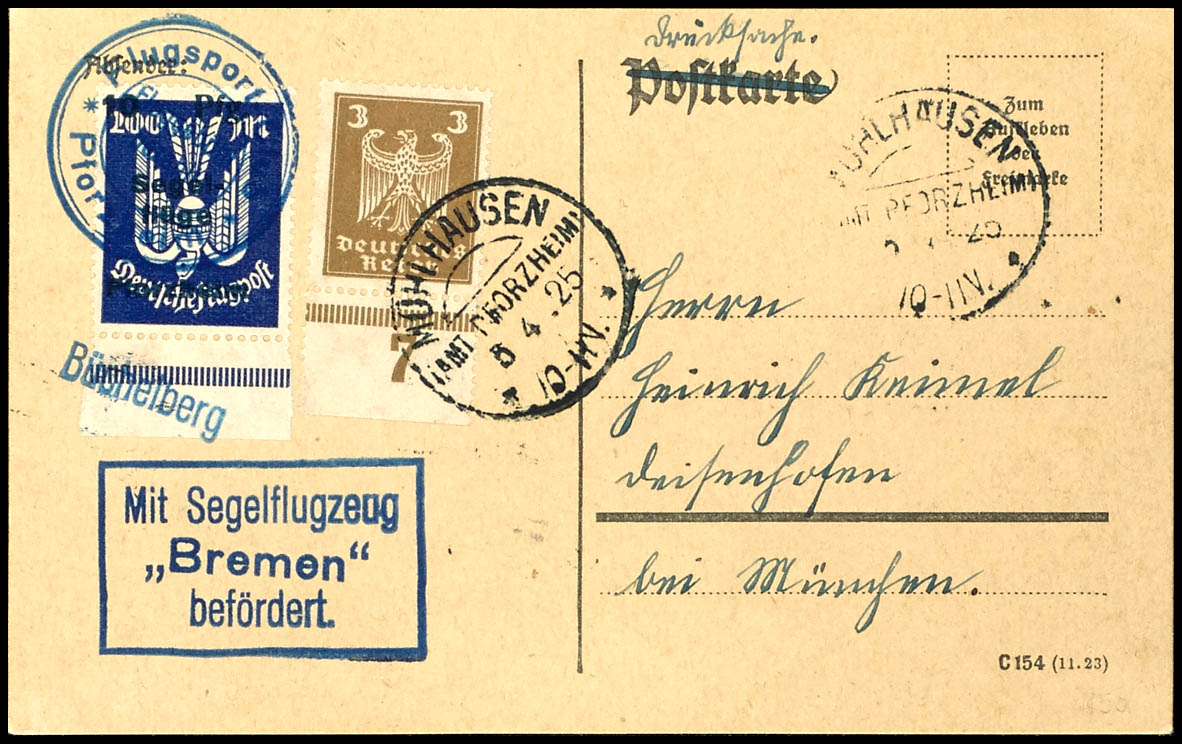 Drucksache.
Postkarte
Absender:
Flugsport
Pfor
10 Pfg.
200 M
Segel-
flüge
Deutsche Flugpost
3 3
Deutsches
Reich
7
MÜHLHAUSEN
(AMT PFORZHEIM)
5 4 .25
10-11V.
MÜHLHAUSEN
AMT PFORZHEIM
25
10-11V.
Zum
Aufkleben
der
Freimarke
Büchelberg
Mit Segelflugzeug
„Bremen“
befördert.
Herrn
Heinrich Keimel
Deisenhofen
bei München.
C 154 (11.23)